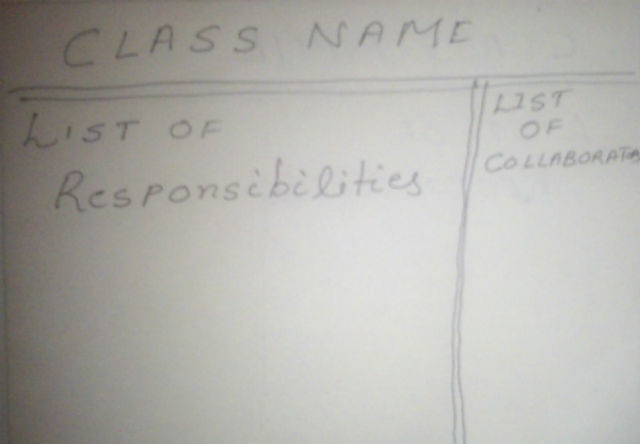 CLASS NAME
LIST OF
Responsibilities
LIST
OF
COLLABORATO